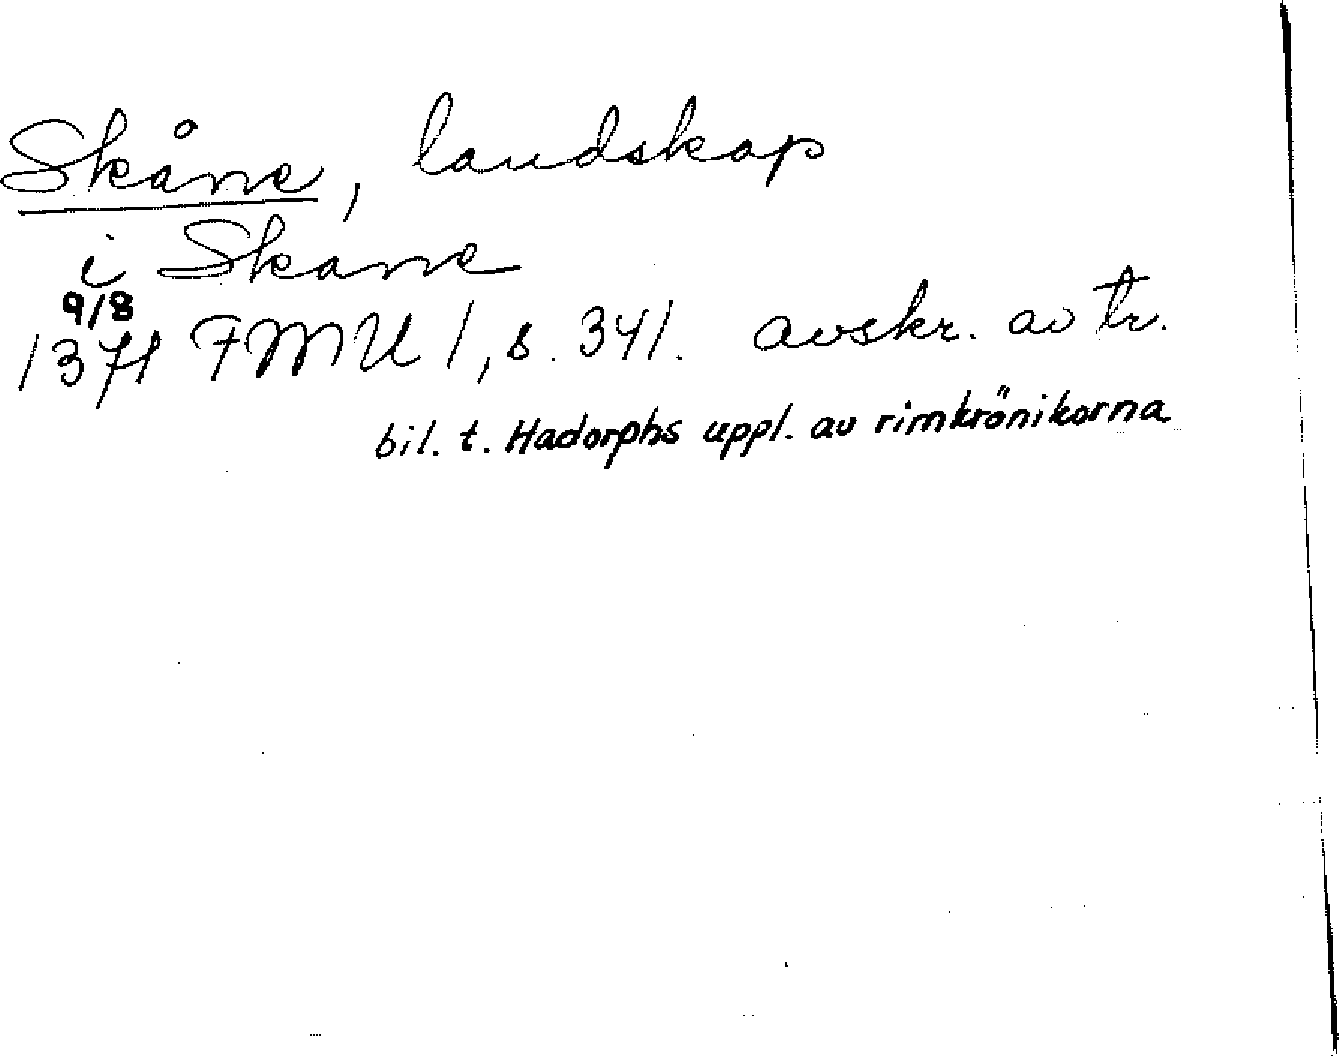 Skåne, landskap
i Skane
9/8
1371 FMU 1, s. 341. avskr. av tr.
bil. t. Hadorphs uppl. av rimkrönikorna